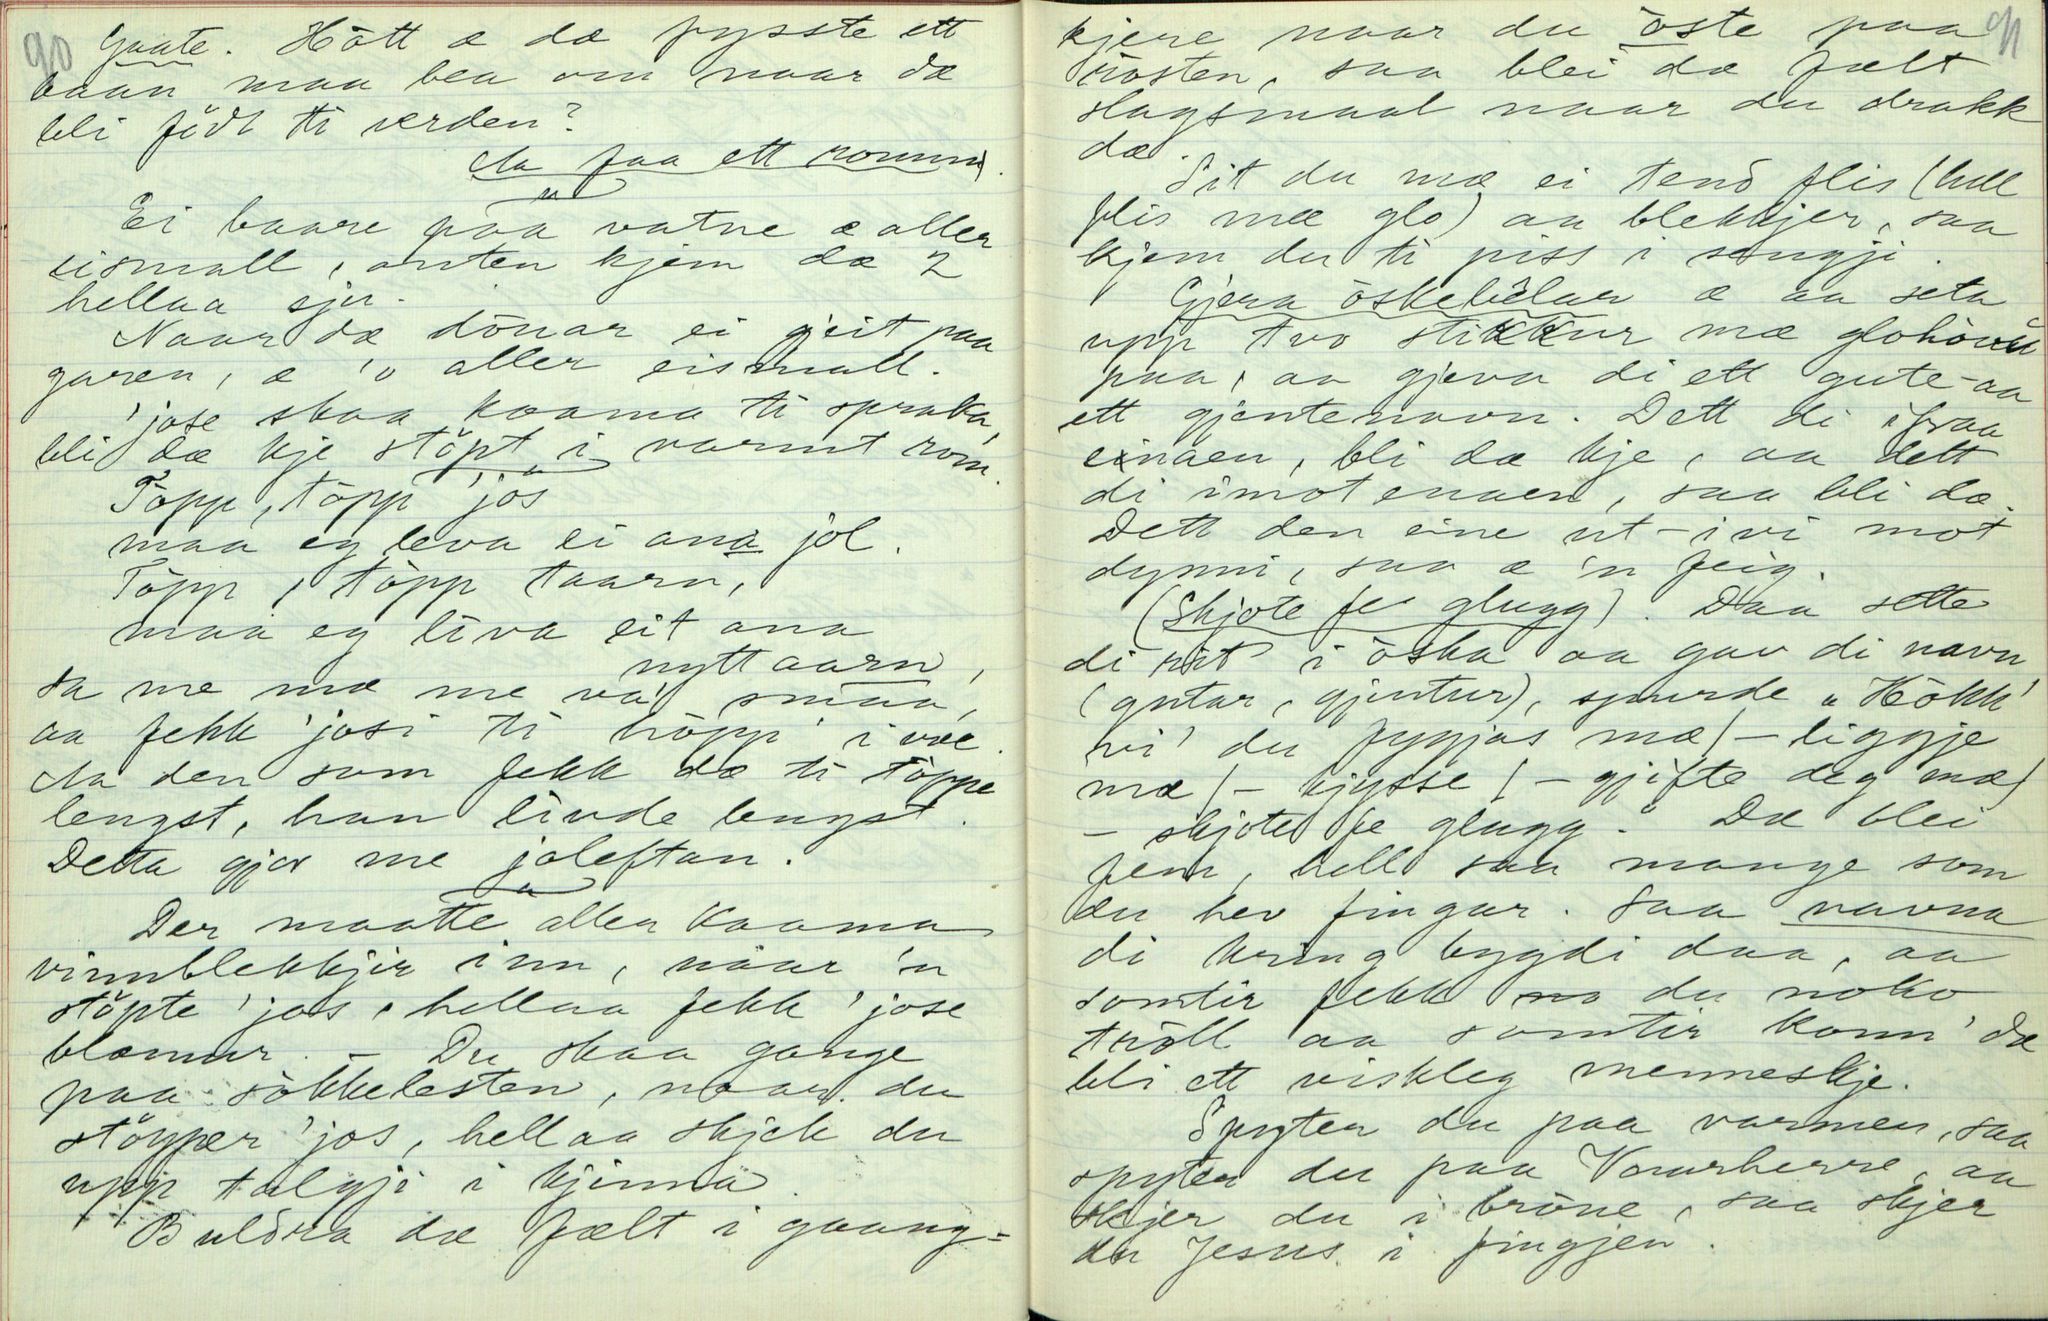 90
Gaate. Hött æ dæ fysste ett
baan maa bea om naar dæ
bli född ti verden?
Aa faa ett romm.
Ei baare paa vatne æ aller
eismall, anten kjem dæ 2
hellaa sjer.
Naar dæ dönar ei gjeit paa
garen, æ 'o aller eismall.
'jose skaa kaama ti spraka,
bli dæ kje stöpt i varmt rom.
Töpp, töpp 'jos
maa eg leva ei ana jol.
Töpp, töpp taarn,
maa eg liva eit ana
nyttaarn,
sa me mæ me va' smaa,
aa fekk 'josi ti höpp' i væ.
Aa den som fekk dæ ti töppe
lengst, han livde lengst.
Detta gjor me joleftan.
Der maatte aller kaama
vinnblekkjer inn, naar 'n
stöpte 'jos, hellaa fekk 'jose
blæmur. – Du skaa gange
paa sökkelesten, naar du
stöyper 'jos, hellaa skjek du
upp talgji i kjinna.
Buldra dæ fælt i gaang-
91
kjere naar du öste paa
rosten, saa blei dæ fælt
slagsmaal naar du drakk
dæ.
Sit du mæ ei tend flis (hell
flis mæ glo) aa blekkjer, saa
kjem du ti piss i sengji.
Gjera öskebelar æ aa seta
upp tvo stikkur mæ glohövu
paa, aa gjeva di ett gute- aa
ett gjentenavn. Dett di ifraa
einaen, bli dæ kje, aa dett
di imot enaen, saa bli dæ.
Dett den eine ut-ivi mot
dynni, saa æ 'n feig.
(Skjote fe glugg). Daa sette
di nit i öska aa gav di navn
(gutar, gjentur), spurde „Hökk'
vi' du fygjas mæ/ – liggje
mæ/ – kjysse/ – gjifte deg mæ/
– skjote fe glugg." Dæ blei
fem, hell saa mange som
du hev fingar. Saa navna
di kring bygdi daa, aa
somtir fekk du noko
tröll aa somtir konn' dæ
bli ett viskleg menneskje.
Spyter du paa varmen, saa
spyter du paa Vorarherre, aa
skjer du i bröne, saa skjer
du Jesus i fingjen.